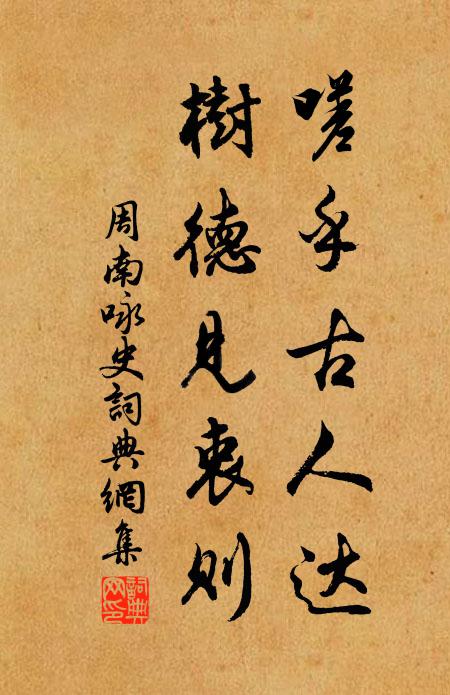 嗟乎古人达
樹德見衷則
周南咏史詞典網集
詞典网印